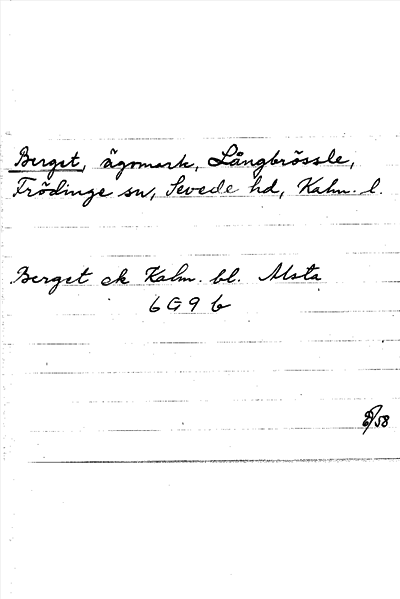 Berget, ägomark, Långbrössle,
Frödinge sn, Sevede hd, Kalm. l.
Berget ek Kalm. bl. Alsta
6G9b
/58